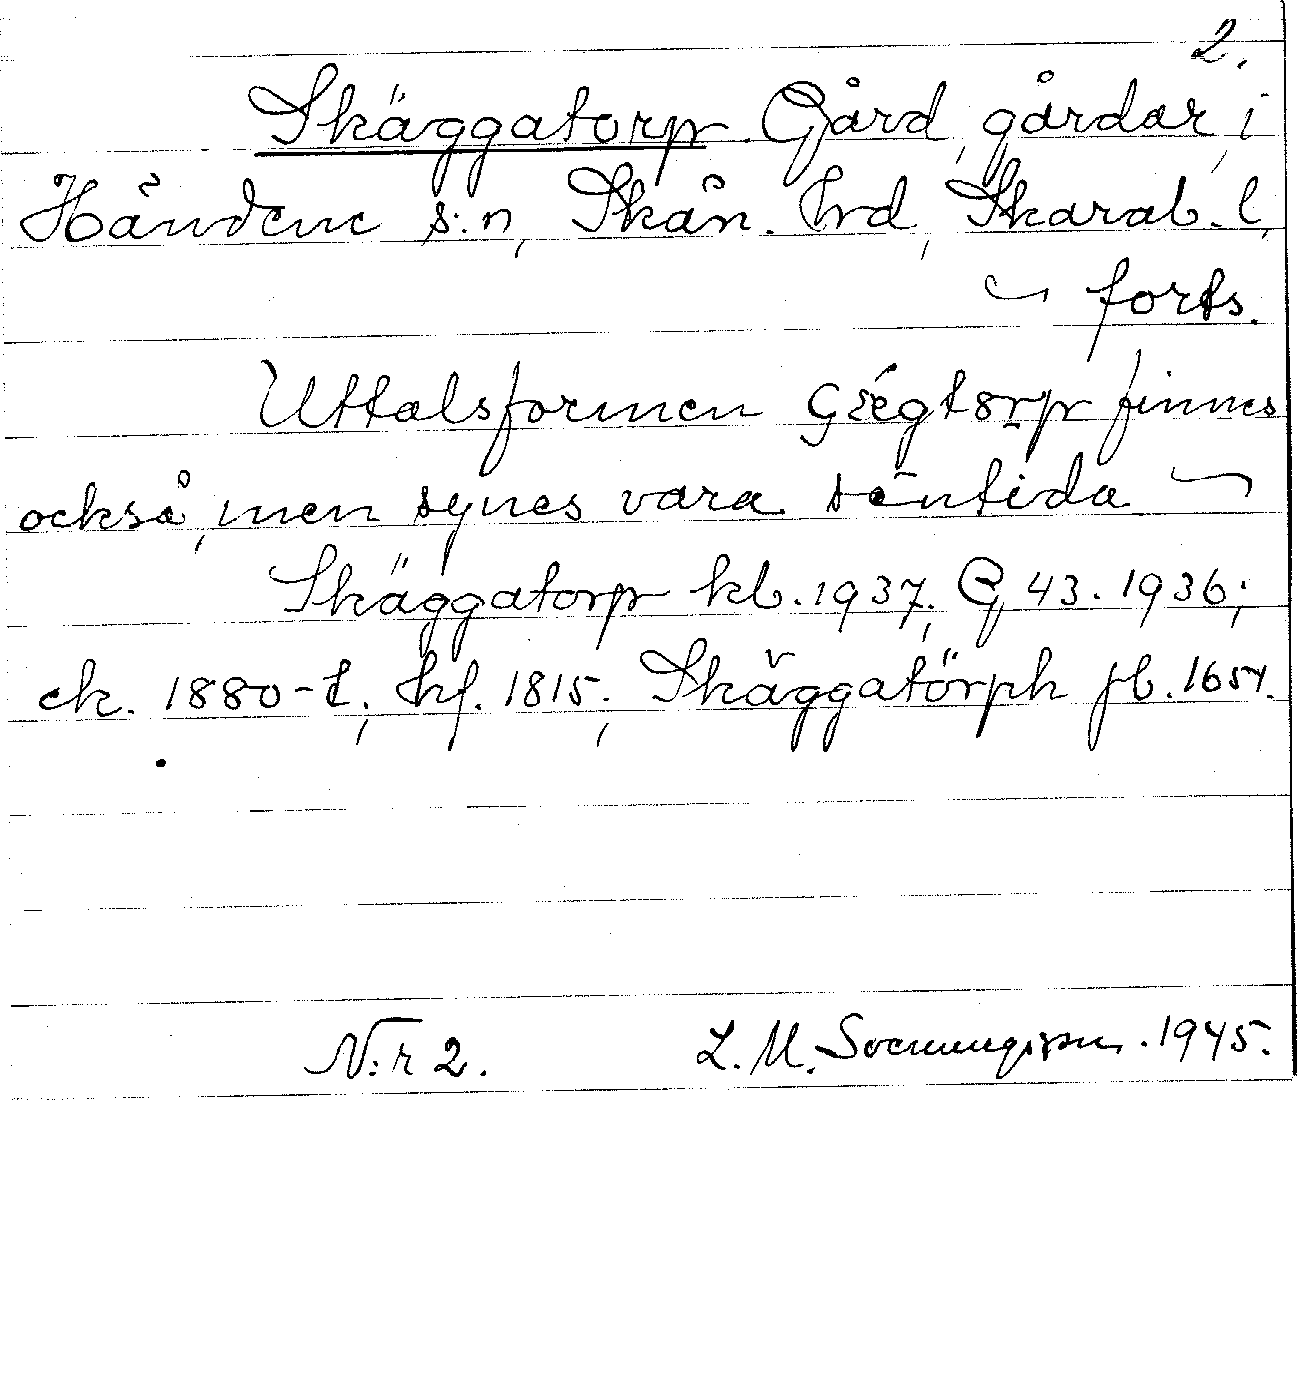 2.
Skäggatorp Gård, gårdar, i
Händene s:n, Skån. hrd, Skarab. l.
forts.
Uttalsformen finnes
också, men synes vara sentida
Skäggatorp kb. 1937, G. 43. 1936;
ek. 1880-t, hf. 1815; Skäggatörph jb. 1654.
N:r 2. L. M. Svenungsson. 1945.